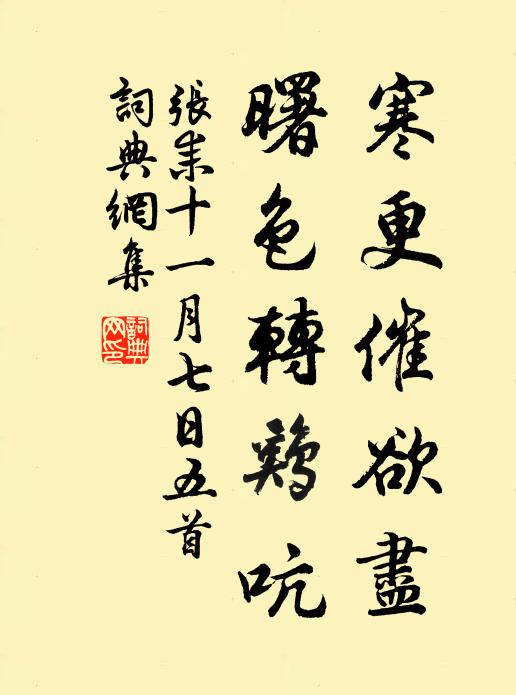 寒更催欲盡
曙色轉鷄吭
張耒十一月七日五首
詞典網集
詞典
网印